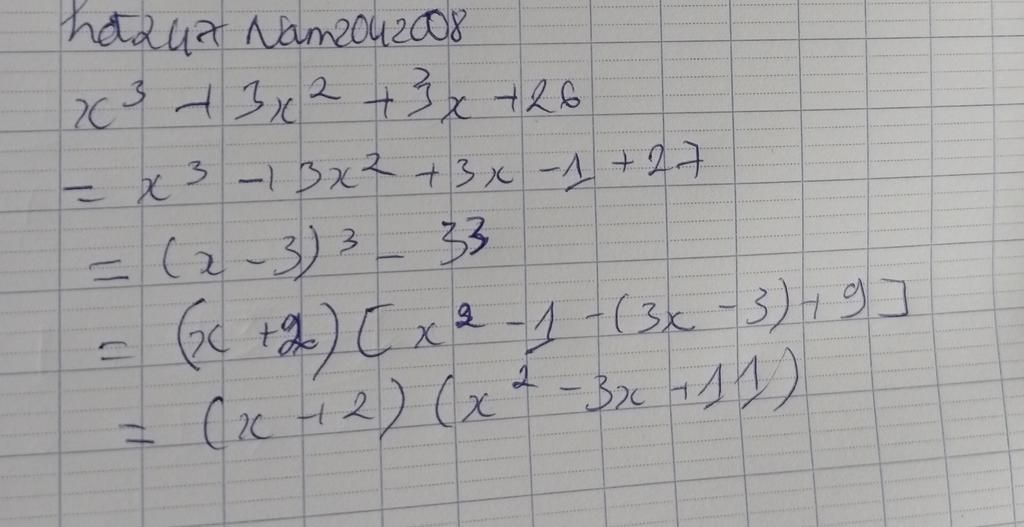 hdt247 Nam2042008
x³ + 3x² + 3x + 26
= x³ + 3x² + 3x - 1 + 27
= (x - 3)³ - 33
= (x + 2) [x² - 1 - (3x - 3) + 9]
= (x + 2) (x² - 3x + 11)